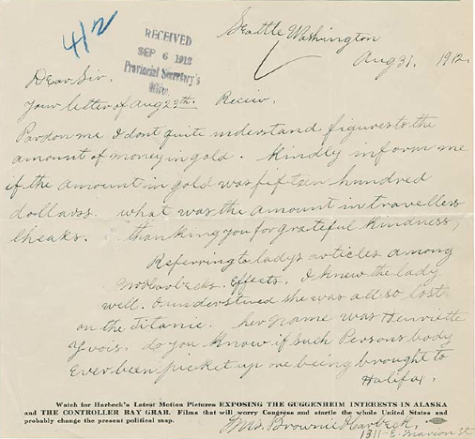 Seattle Washington
4/2
RECEIVED
SEP 6 1912
Provincial Secretary's
Office.
Aug 31, 1912.
Dear Sir.
Your letter of Aug 22th. Reciev.
Pardon me I dont quite understand figures to the
amount of money in gold. Kindly inform me
if the amount in gold was fiftein hundred
dollars. what was the amount in travellers
cheaks. thanking you for grateful kindness,
Referring to lady's articles among
Mr Harbecks. Effects. I knew the lady
well. I understeud she was all so lost
on the Titanic., her name was Henriette
Yvois. do you know if such Persons body
Ever been picket up one being brought to
Halifax.
Watch for Harbeck's Latest Motion Pictures EXPOSING THE GUGGENHEIM INTERESTS IN ALASKA
and THE CONTROLLER BAY GRAB. Films that will worry Congress and startle the whole United States and
probably change the present political map.
Mrs. Brownie Harbeck.
1311-E. Marion St